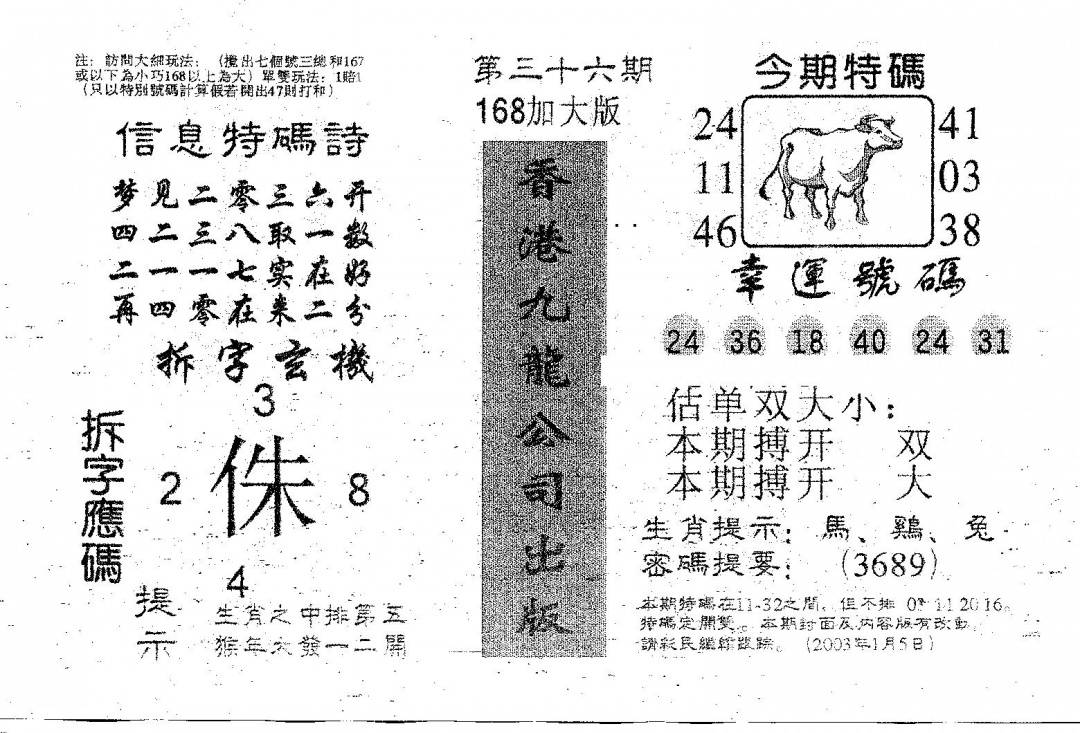 注：訪問大細玩法：（攪出七個號三總和167
或以下為小巧168以上為大）單雙玩法：1賠1
（只以特別號碼計算假若開出47則打和）
信息特碼詩
梦见二零三六开
四二三八取一数
二一一七实在好
再四零在来二分
拆字玄機
3
拆字應碼
2 侏 8
4
提示
生肖之中排第五
猴年大發一二開
第三十六期
168加大版
香港九龍公司出版
今期特碼
24 41
11 03
46 38
幸運號碼
24 36 18 40 24 31
估单双大小：
本期搏开 双
本期搏开 大
生肖提示：馬、鷄、兔
密碼提要：（3689）
本期特碼在11-32之間，但不排 11 20 16。
特碼定開雙。本期封面及內容版有改動。
請彩民繼續跟踪。（2003年1月5日）